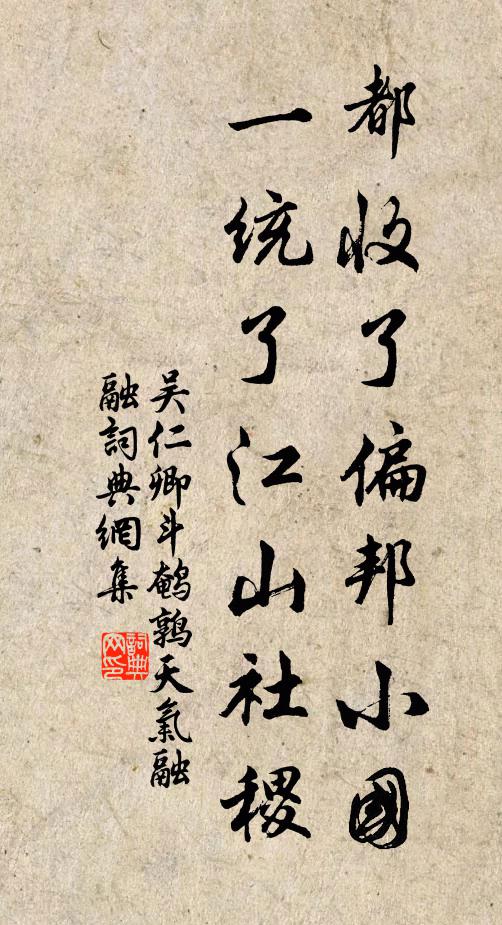 都收了偏邦小國
一統了江山社稷
吴仁卿斗鹌鹑天氣融
融詞典網集
詞典网印